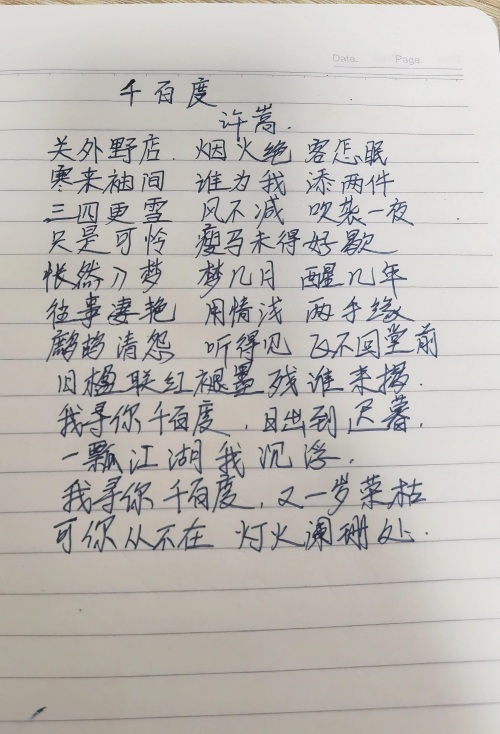 Date. Page.
千百度
许嵩.
关外野店 烟火绝 客怎眠
寒来袖间 谁为我 添两件
三四更雪 风不减 吹袭一夜
只是可怜 瘦马未得好歇
怅然入梦 梦几月 醒几年
往事凄艳 用情浅 两手缘
鹧鸪清怨 听得见 飞不回堂前
旧楹联红褪墨残谁来揭.
我寻你千百度,日出到迟暮,
一瓢江湖我沉浮.
我寻你千百度,又一岁荣枯
可你从不在 灯火阑珊处.